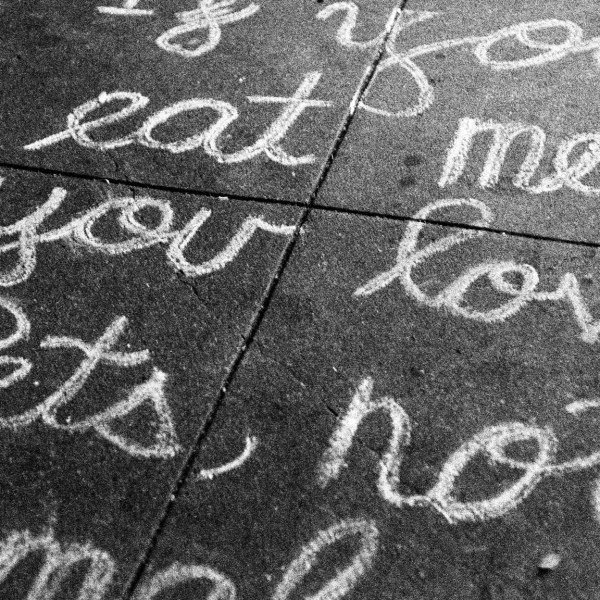 If you
eat me
you lov
ets, no